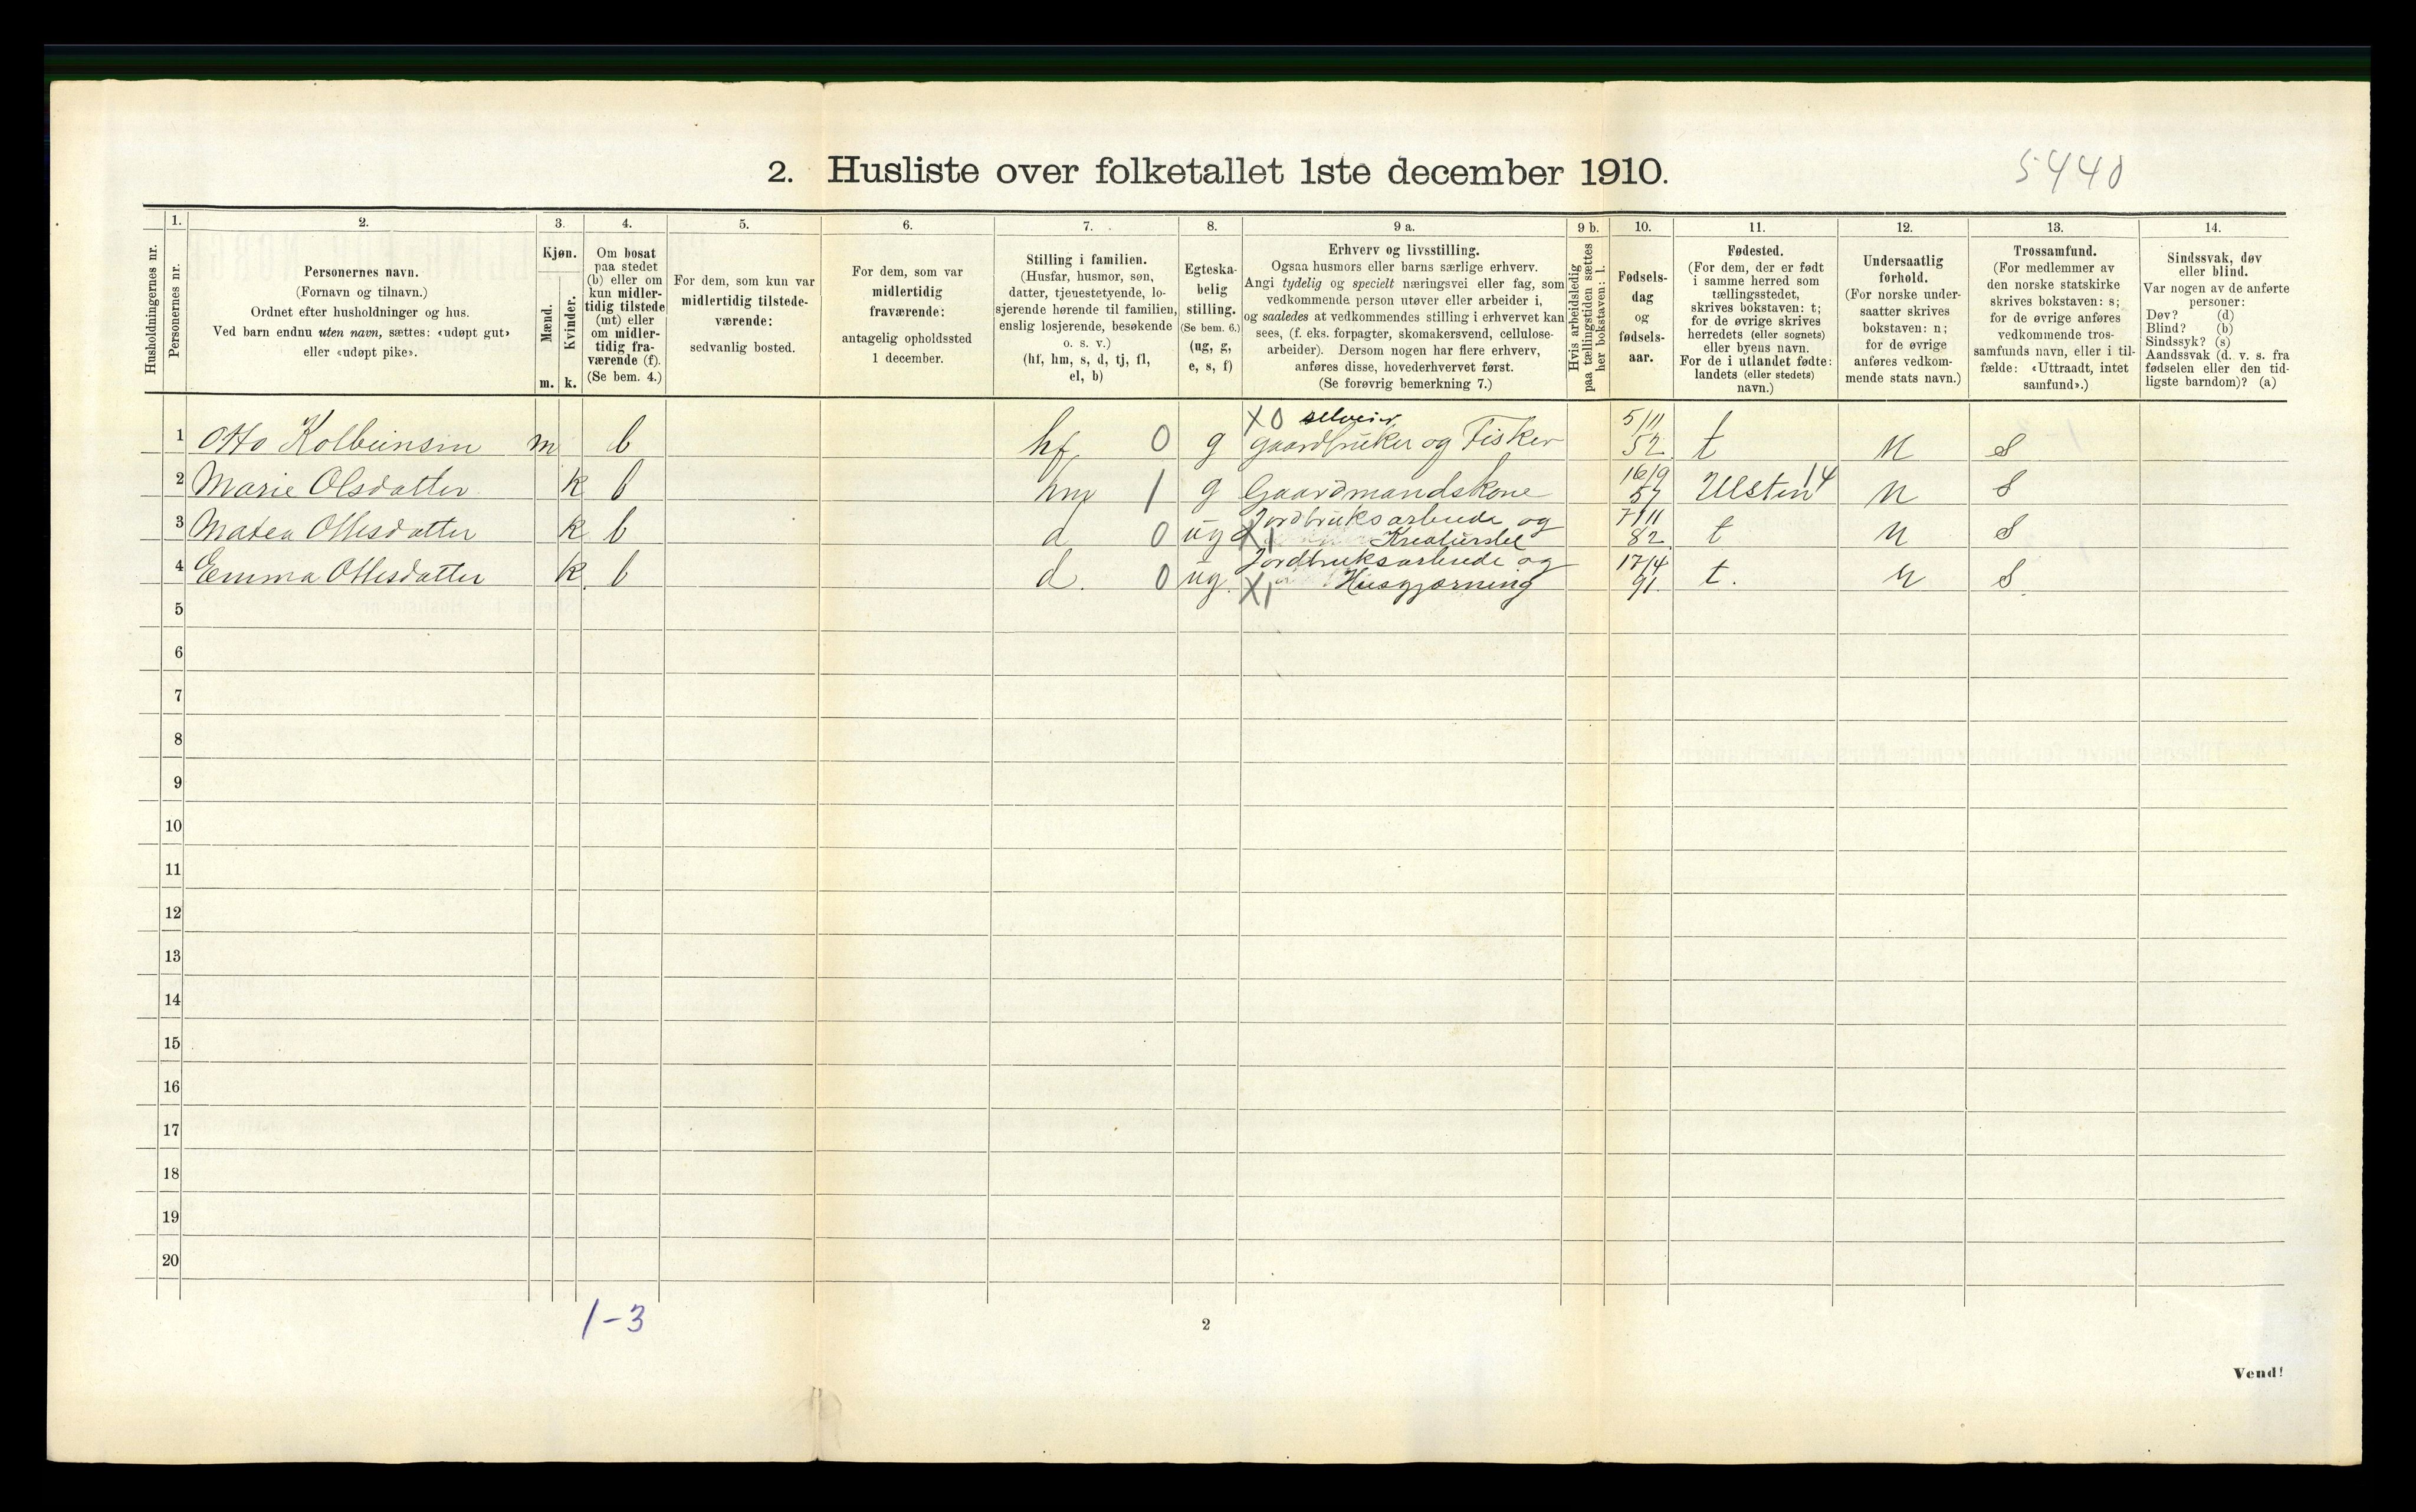 2. Husliste over folketallet 1ste december 1910.
5440
Husholdningernes nr.
1.
Personernes nr.
2.
Personernes navn.
(Fornavn og tilnavn.)
Ordnet efter husholdninger og hus.
Ved barn endnu uten navn, sættes: «udøpt gut»
eller «udøpt pike».
3.
Kjøn.
Mænd.
Kvinder.
m. k.
4.
Om bosat
paa stedet
(b) eller om
kun midler-
tidig tilstede
(mt) eller
om midler-
tidig fra-
værende (f).
(Se bem. 4.)
5.
For dem, som kun var
midlertidig tilstede-
værende:
sedvanlig bosted.
6.
For dem, som var
midlertidig
fraværende:
antagelig opholdssted
1 december.
7.
Stilling i familien.
(Husfar, husmor, søn,
datter, tjenestetyende, lo-
sjerende hørende til familien,
enslig losjerende, besøkende
o. s. v.)
(hf, hm, s, d, tj, fl,
el, b)
8.
Egteska-
belig
stilling.
(Se bem. 6.)
(ug, g,
e, s, f)
9 a.
Erhverv og livsstilling.
Ogsaa husmors eller barns særlige erhverv.
Angi tydelig og specielt næringsvei eller fag, som
vedkommende person utøver eller arbeider i,
og saaledes at vedkommendes stilling i erhvervet kan
sees, (f. eks. forpagter, skomakersvend, cellulose-
arbeider). Dersom nogen har flere erhverv,
anføres disse, hovederhvervet først.
(Se forøvrig bemerkning 7.)
9 b.
Hvis arbeidsledig
paa tællingstiden sættes
her bokstaven: l.
10.
Fødsels-
dag
og
fødsels-
aar.
11.
Fødested.
(For dem, der er født
i samme herred som
tællingsstedet,
skrives bokstaven: t;
for de øvrige skrives
herredets (eller sognets)
eller byens navn.
For de i utlandet fødte:
landets (eller stedets)
navn.)
12.
Undersaatlig
forhold.
(For norske under-
saatter skrives
bokstaven: n;
for de øvrige
anføres vedkom-
mende stats navn.)
13.
Trossamfund.
(For medlemmer av
den norske statskirke
skrives bokstaven: s;
for de øvrige anføres
vedkommende tros-
samfunds navn, eller i til-
fælde: «Uttraadt, intet
samfund».)
14.
Sindssvak, døv
eller blind.
Var nogen av de anførte
personer:
Døv? (d)
Blind? (b)
Sindssyk? (s)
Aandssvak (d. v. s. fra
fødselen eller den tid-
ligste barndom)? (a)
X0 selveier 5/11
1 Otto Kolbeinsen m b hf 0 g gaardbruker og Fisker 52 t n s
16/9
2 Marie Olsdatter k b hm 1 g Gaardmandskone 57 Ulsten 14 n s
Jordbruksarbeide og 7/11
3 Matea Ottesdatter k b d 0 ug X1 Kreaturstel 82 t n s
Jordbruksarbeide og 17/4
4 Emma Ottesdatter k b d. 0 ug. X1 Husgjærning 91. t. n s.
5
6
7
8
9
10
11
12
13
14
15
16
17
18
19
20
1-3
2
Vend!